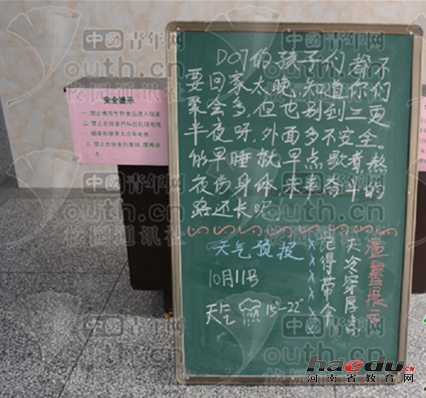 安全提示
D07的孩子们,都不
要回家太晚,知道你们
聚会多,但也别到三更
半夜呀,外面多不安全。
能早睡就早点歇着,熬
夜伤身体,未来奋斗的
路还长呢
天气预报
10月11号
天气 15°-22°
温馨提示
天冷穿厚点
记得带伞
中国青年网
校园通讯社
youth.cn
haedu.cn
河南省教育网